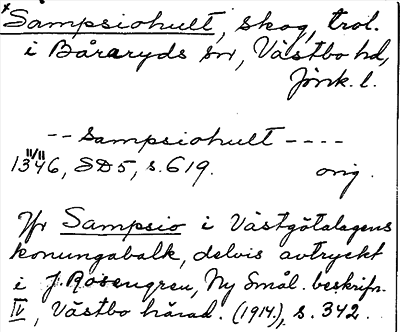 *Sampsiohult, skog, trol.
i Båraryds sn, Västbo hd,
Jönk. l.
-- Sampsiohult ----
11/11
1346, SD5, s. 619. orig.
Jfr Sampsio i Västgötalagens
konungabalk, delvis avtryckt
i J. Rosengren, Ny Smål. beskrifn.
IV, Västbo härad. (1914), s. 342.